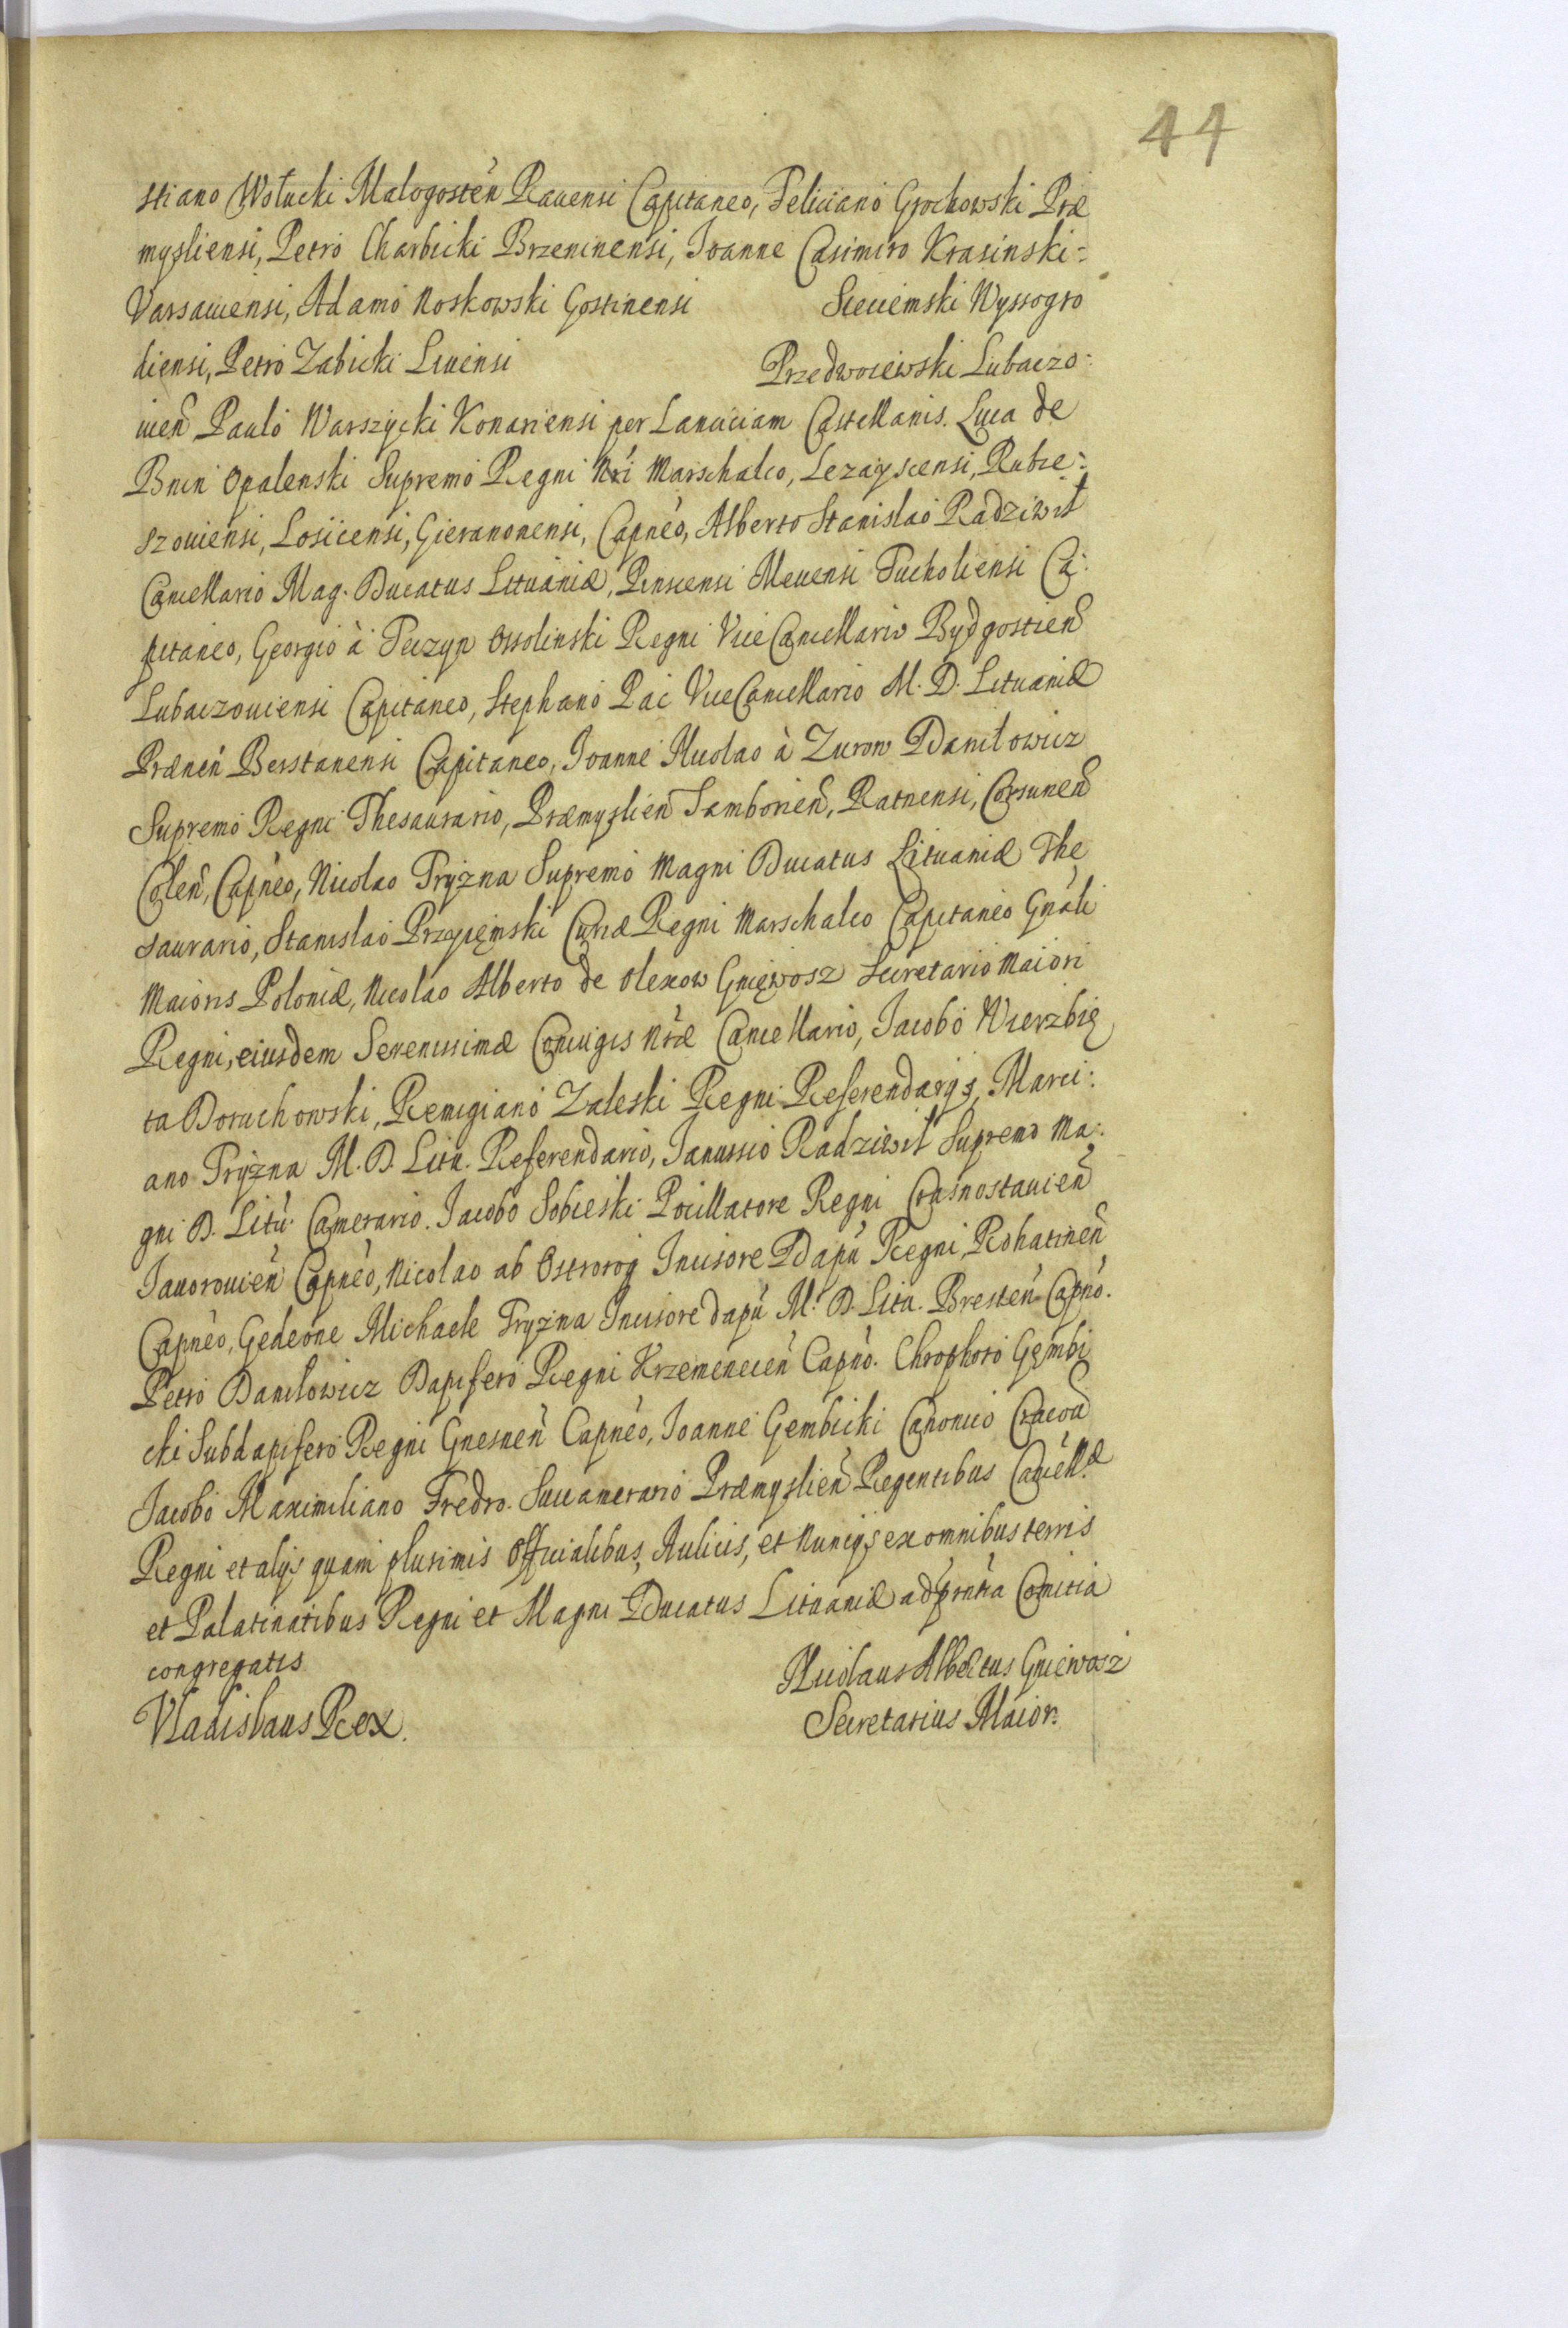 44
stiano Wołucki Malogosteǹ Rauensi Capitaneo, Feliciano Grochowski Præ
mysliensi, Petro Charbicki Brzeninensi, Ioanne Casimiro Krasinski-
Varsauiensi, Adamo Noskowski Gostinensi Sieciemski Wyssogro
diensi, Petro Zabicki Liuensi Przedwoiewski Lubaczo-
uień Paulo Warszycki Konariensi per Lanciciam Castellanis. Luca de
Bnin Opalenski Supremo Regni Nri Marschalco, Lezayscensi, Rubie-
szouiensi, Losicensi, Gieranonensi, Capneo, Alberto Stanislao Radziwił
Cancellario Mag. Ducatus Lituaniæ, Pinscensi Meuensi Tucholiensi Ca-
pitaneo, Georgio à Teczyn Ossolinski Regni ViceCancellario Bydgostień
Lubaczouiensi Capitaneo, Stephano Pac ViceCancellario M. D. Lituaniæ
Præneń Berstanensi Capitaneo, Ioanne Nicolao à Zurow Daniłowicz
Supremo Regni Thesaurario, Præmyslień Samborień, Ratnensi, Corsuneń
Coleń, Capneo, Nicolao Tryzna Supremo Magni Ducatus Lituaniæ The
saurario, Stanislao Przyięmski Curiæ Regni Marschalco Capitaneo Gnali
Maioris Poloniæ, Nicolao Alberto de Olexow Gnięwosz Secretario Maiori
Regni, eiusdem Serenissimæ Coniugis Nræ Cancellario, Iacobo Wierzbię
ta Doruchowski, Remigiano Zaleski Regni Referendarijs, Marci-
ano Tryzna M. D. Litu. Referendario, Ianussio Radziwił Supremo Ma-
gni D. Litu. Camerario. Iacobo Sobieski Pocillatore Regni Crasnostauień
Iauorouień Capneo, Nicolao ab Ostrorog Incisore Dapu Regni Rohatineń
Capneo, Gedeone Michaele Tryzna Incisore dapu M. D. Litu. Bresteń Capno.
Petro Daniłowicz Dapifero Regni Krzemenecień Capno. Chrophoro Gęmbi
cki Subdapifero Regni Gnesneń Capneo, Ioanne Gembicki Canonico Cracou
Iacobo Maximiliano Fredro. Succamerario Præmyslień Regentibus Cancellæ
Regni et alijs quam plurimis Officialibus, Aulicis, et Nuncijs ex omnibus terris
et Palatinatibus Regni et Magni Ducatus Lituaniæ ad prntia Comitia
congregatis
Nicolaus Albertus Gniewosz
Vladislaus Rex. Secretarius Maior.